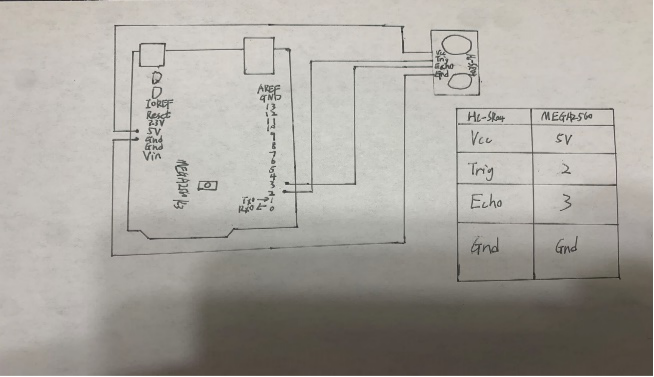 IOREF
Reset
5V
Gnd
Gnd
Vin
AREF
GND
13
12
11
10
9
8
7
6
5
4
3
2
TX0→1
RX0←0
Vcc
Trig
Echo
Gnd
HC-SR04
HC-SR04 MEGA2560
Vcc 5V
Trig 2
Echo 3
Gnd Gnd